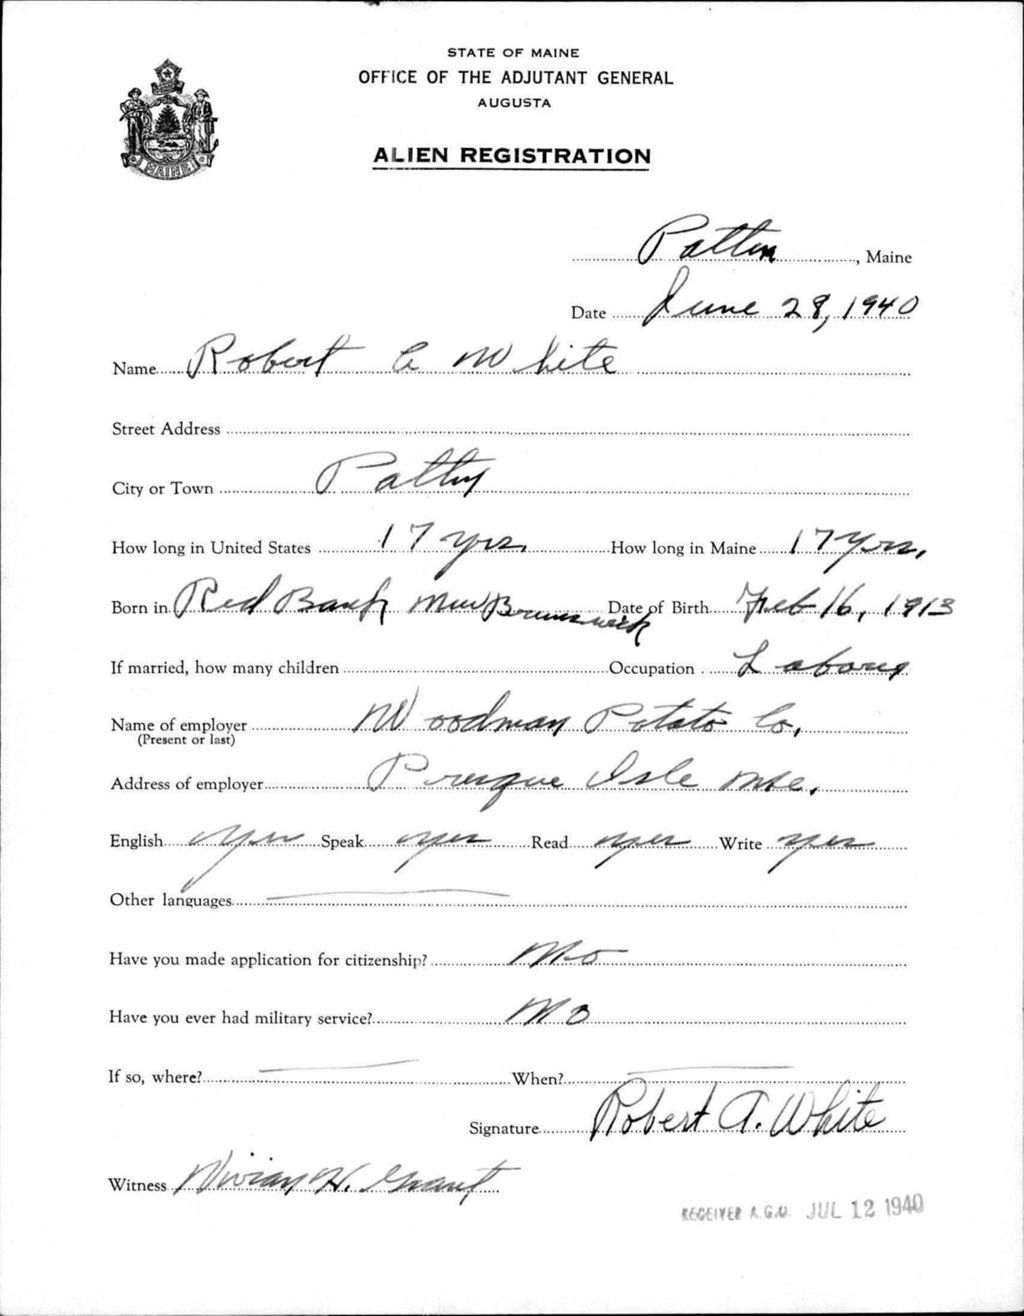 STATE OF MAINE
OFFICE OF THE ADJUTANT GENERAL
AUGUSTA
ALIEN REGISTRATION
MAINE
Patten, Maine
Date June 28, 1940
Name Robert A White
Street Address
City or Town Patten
How long in United States 17 yrs. How long in Maine 17 yrs.
Born in Red Bank New Brunswick Date of Birth Feb 16, 1913
If married, how many children Occupation Laborer
Name of employer Woodman Potato Co.
(Present or last)
Address of employer Presque Isle Me.
English yes Speak yes Read yes Write yes
Other languages
Have you made application for citizenship? No
Have you ever had military service? No
If so, where? When?
Signature Robert A. White
Witness Vivian H. Grant
RECEIVED A.G.O. JUL 12 1940